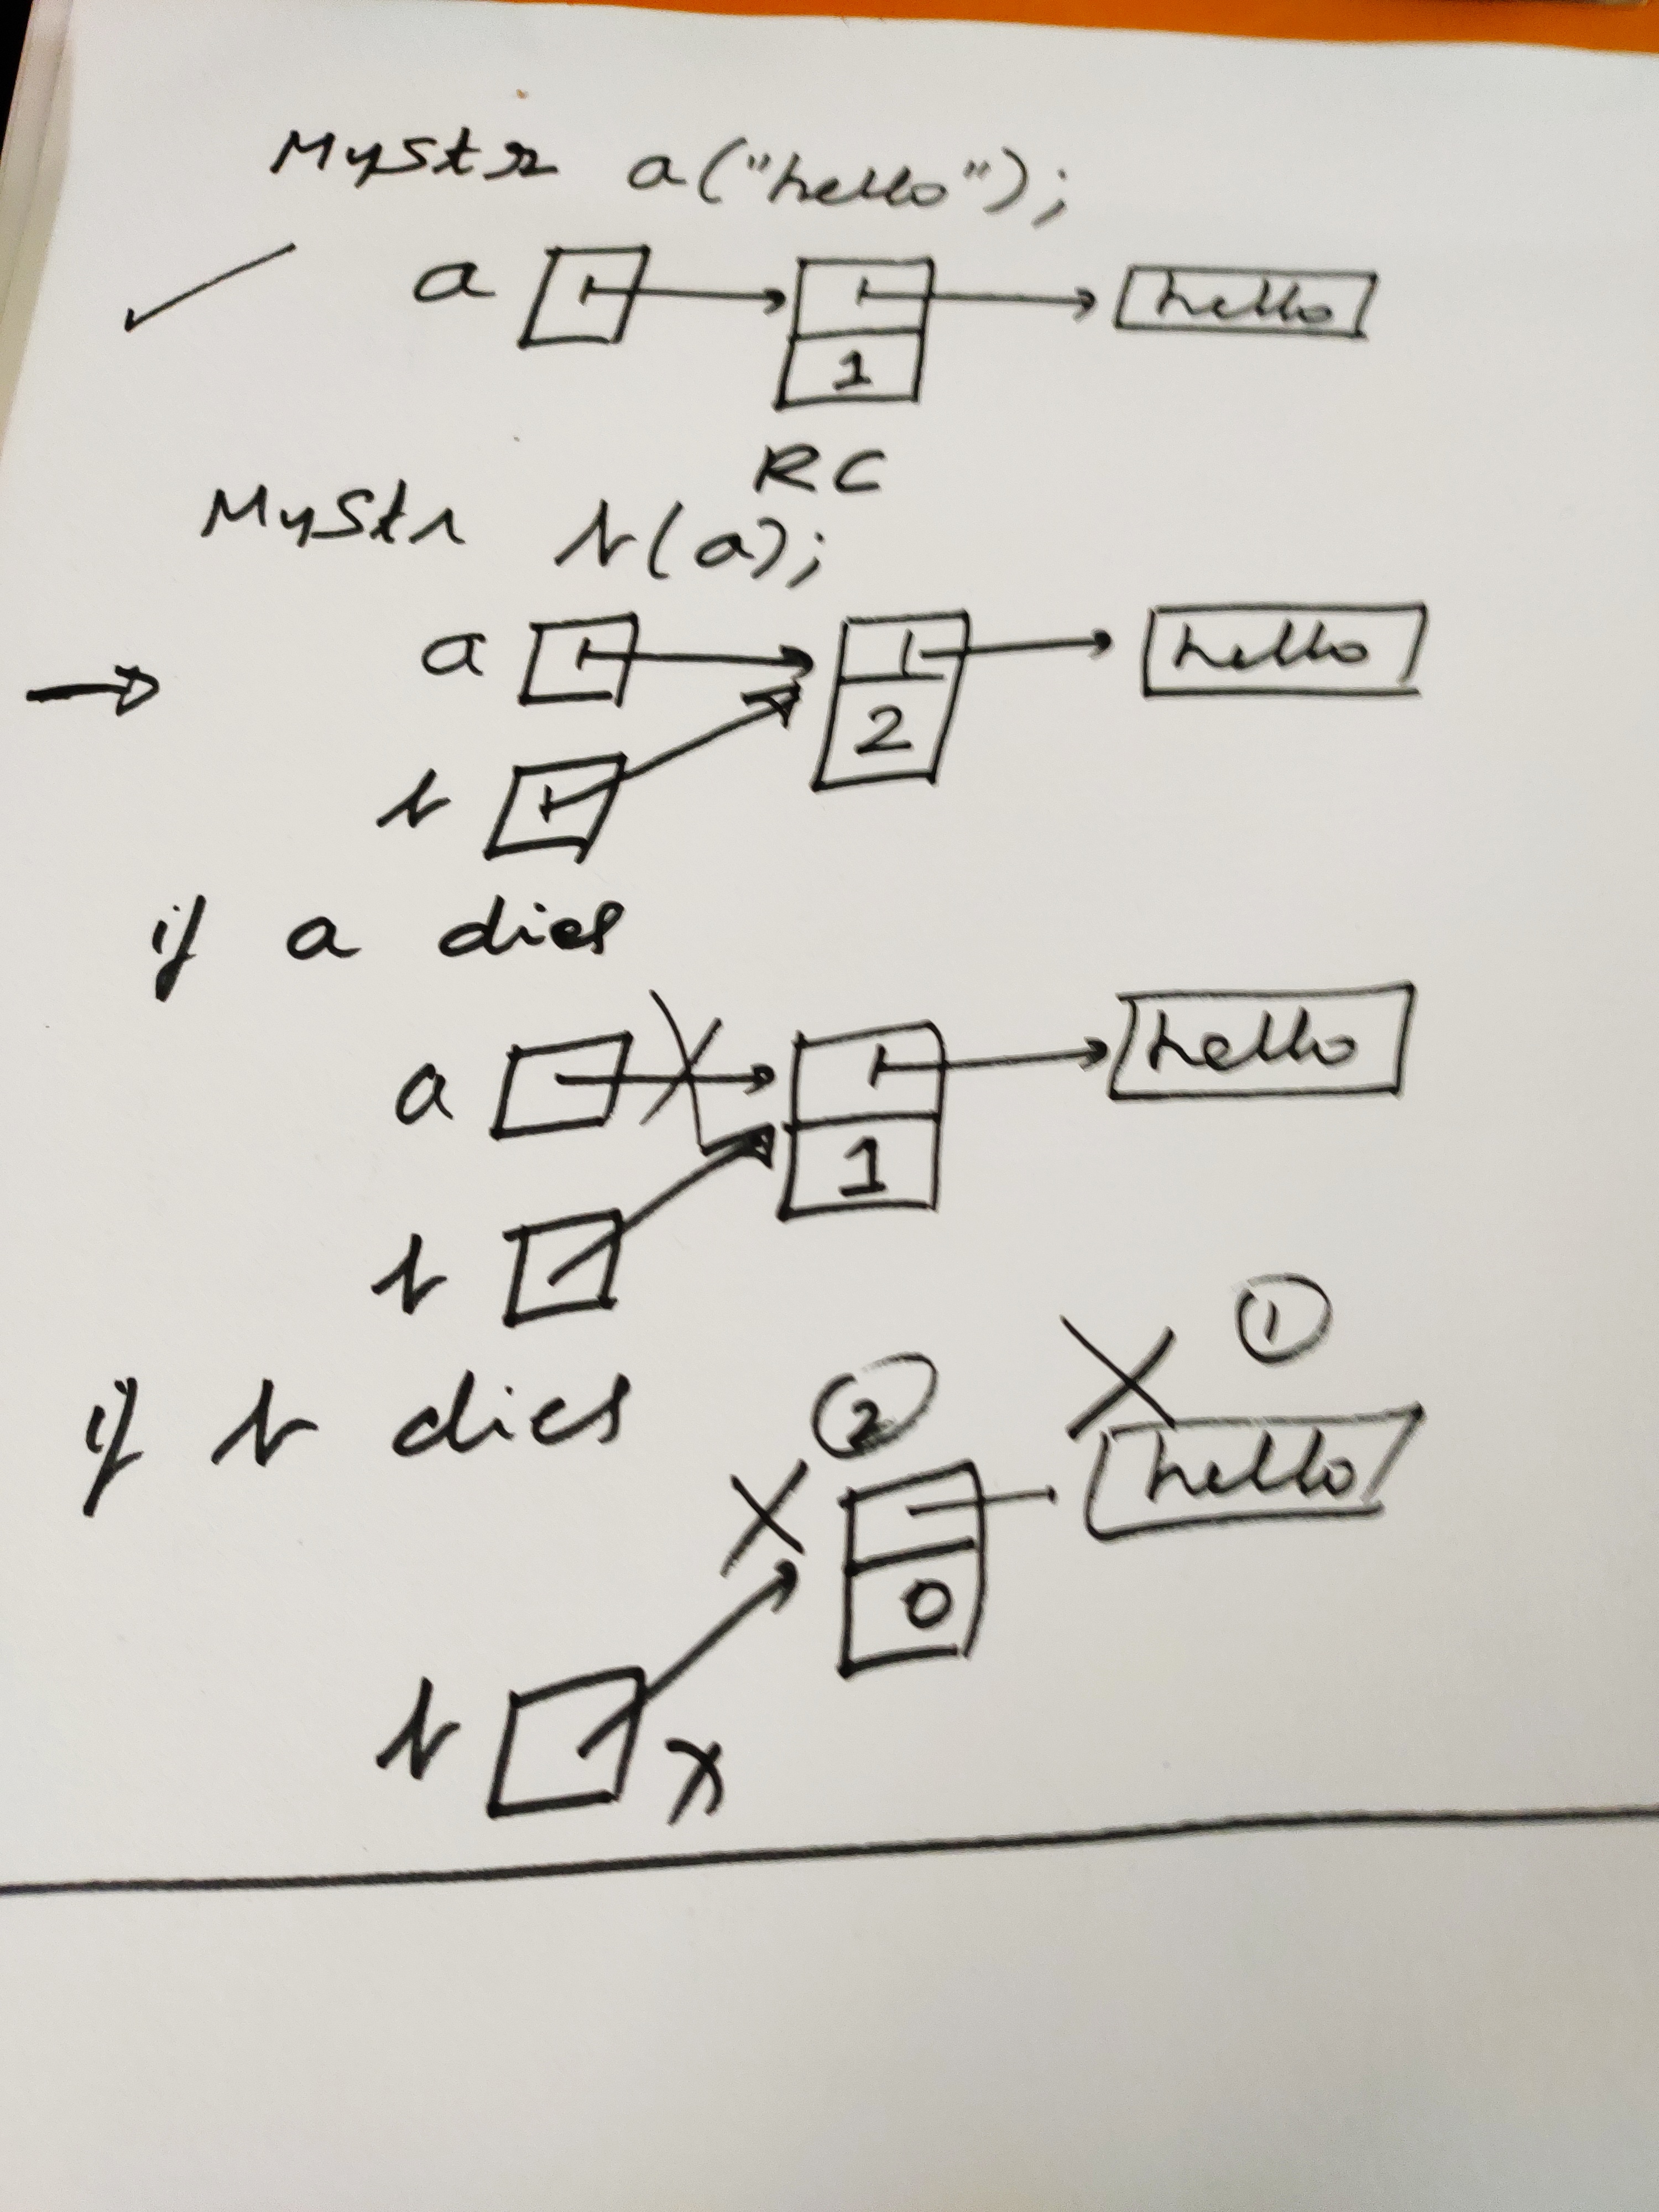 MyStr a("hello");
a hello
1
RC
MyStr b(a);
a hello
2
b
if a dies
a hello
1
b
if b dies
1
2
hello
0
b